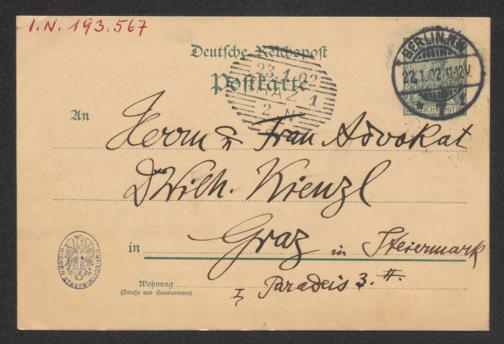 I.N. 193.567
Deutsche Reichspost
Postkarte
BERLIN.N.W.
22.1.02.11-12V.
23.1.02
1
2 N
An
Herrn & Frau Advokat
Dr Wilh. Kienzl
in Graz in Steiermark
Wohnung
(Straße und Hausnummer)
I, Paradeis 3. II.